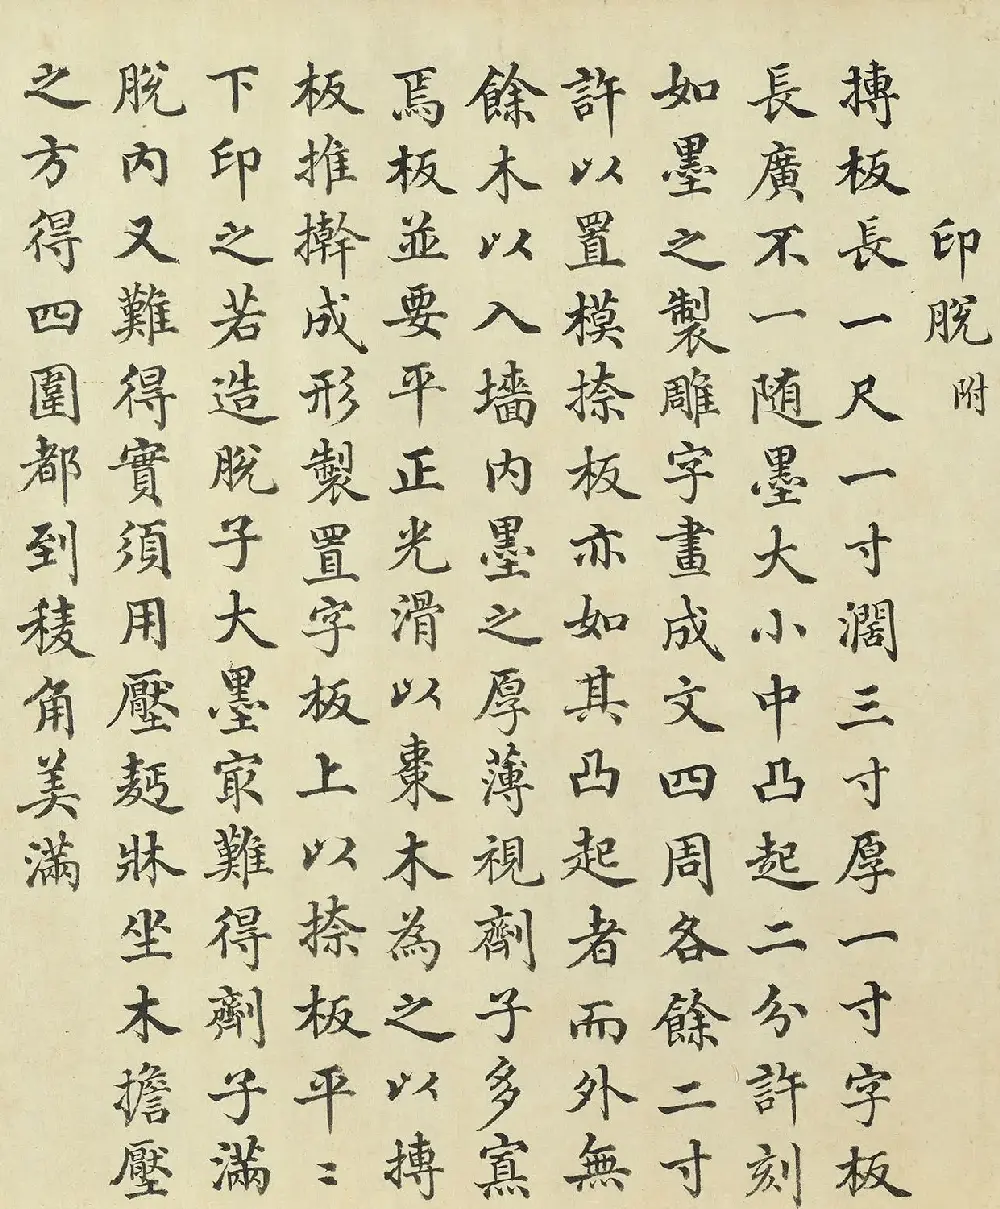 印脫附
摶板長一尺一寸濶三寸厚一寸字板
長廣不一随墨大小中凸起二分許刻
如墨之製雕字畫成文四周各餘二寸
許以置模捺板亦如其凸起者而外無
餘木以入墻内墨之厚薄視劑子多寡
焉板並要平正光滑以棗木為之以摶
板推擀成形製置字板上以捺板平〻
下印之若造脫子大墨㝡難得劑子滿
脫内又難得實須用壓麪牀坐木擔壓
之方得四圍都到稜角美滿